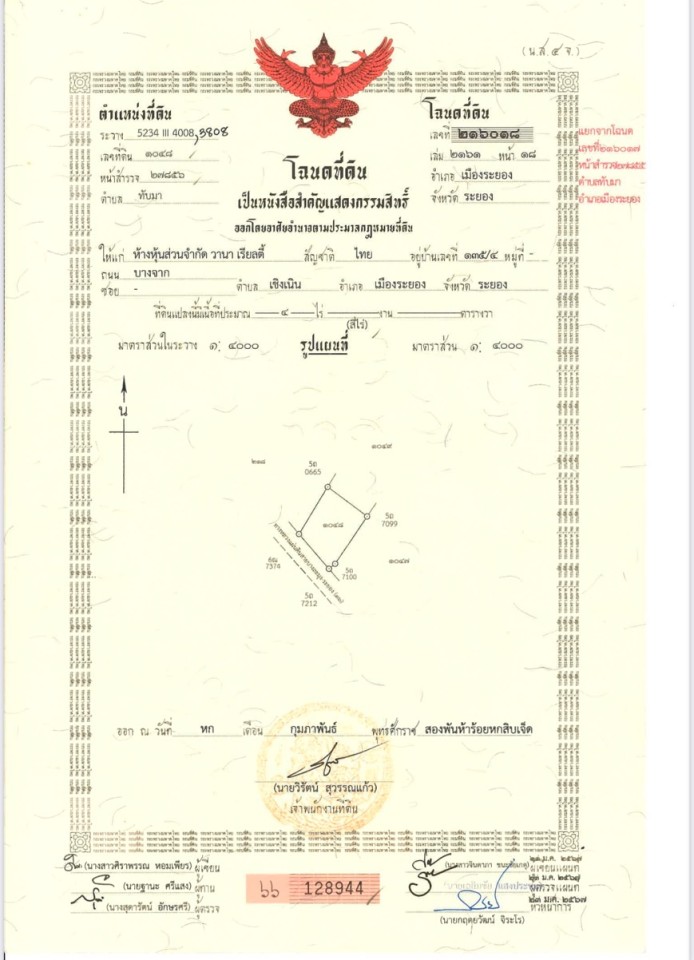 (น.ส.๔ จ.)
ตำแหน่งที่ดิน
ระวาง 5234 III 4008,3808
เลขที่ดิน ๑๐๔๘
หน้าสำรวจ ๒๗๘๕๖
ตำบล ทับมา
โฉนดที่ดิน
เลขที่ ๒๑๖๐๑๘
เล่ม ๒๑๖๑ หน้า ๑๘
อำเภอ เมืองระยอง
จังหวัด ระยอง
แยกจากโฉนด
เลขที่๒๑๖๐๑๗
ตำบลทับมา
อำเภอเมืองระยอง
โฉนดที่ดิน
เป็นหนังสือสำคัญแสดงกรรมสิทธิ์
ออกโดยอาศัยอำนาจตามประมวลกฎหมายที่ดิน
ให้แก่ ห้างหุ้นส่วนจำกัด วานา เรียลตี้ สัญชาติ ไทย อยู่บ้านเลขที่ ๑๓๕/๔ หมู่ที่ -
ถนน บางจาก
ซอย - ตำบล เชิงเนิน อำเภอ เมืองระยอง จังหวัด ระยอง
ที่ดินแปลงนี้มีเนื้อที่ประมาณ ๔ ไร่ งาน ตารางวา
(สี่ไร่)
มาตราส่วนในระวาง ๑: ๔๐๐๐ รูปแผนที่ มาตราส่วน ๑: ๔๐๐๐
น
๑๐๔๙
๒๑๘
5อ
0665
๑๐๔๘
5อ
7099
๑๐๔๗
7374
5อ
7100
5อ
7212
ออก ณ วันที่ หก เดือน กุมภาพันธ์ พุทธศักราช สองพันห้าร้อยหกสิบเจ็ด
(นายวิรัตน์ สุวรรณแก้ว)
เจ้าพนักงานที่ดิน
(นางสาวศิราพรรณ หอมเพียร) ผู้เขียน
(นายฐานะ ศรีแสง) ผู้ทาน
(นางสุดารัตน์ อักษรศรี) ผู้ตรวจ
128944
ผู้เขียนแผนที่
ผู้ตรวจแผนที่
(นายกฤตยวัฒน์ จิระโร)